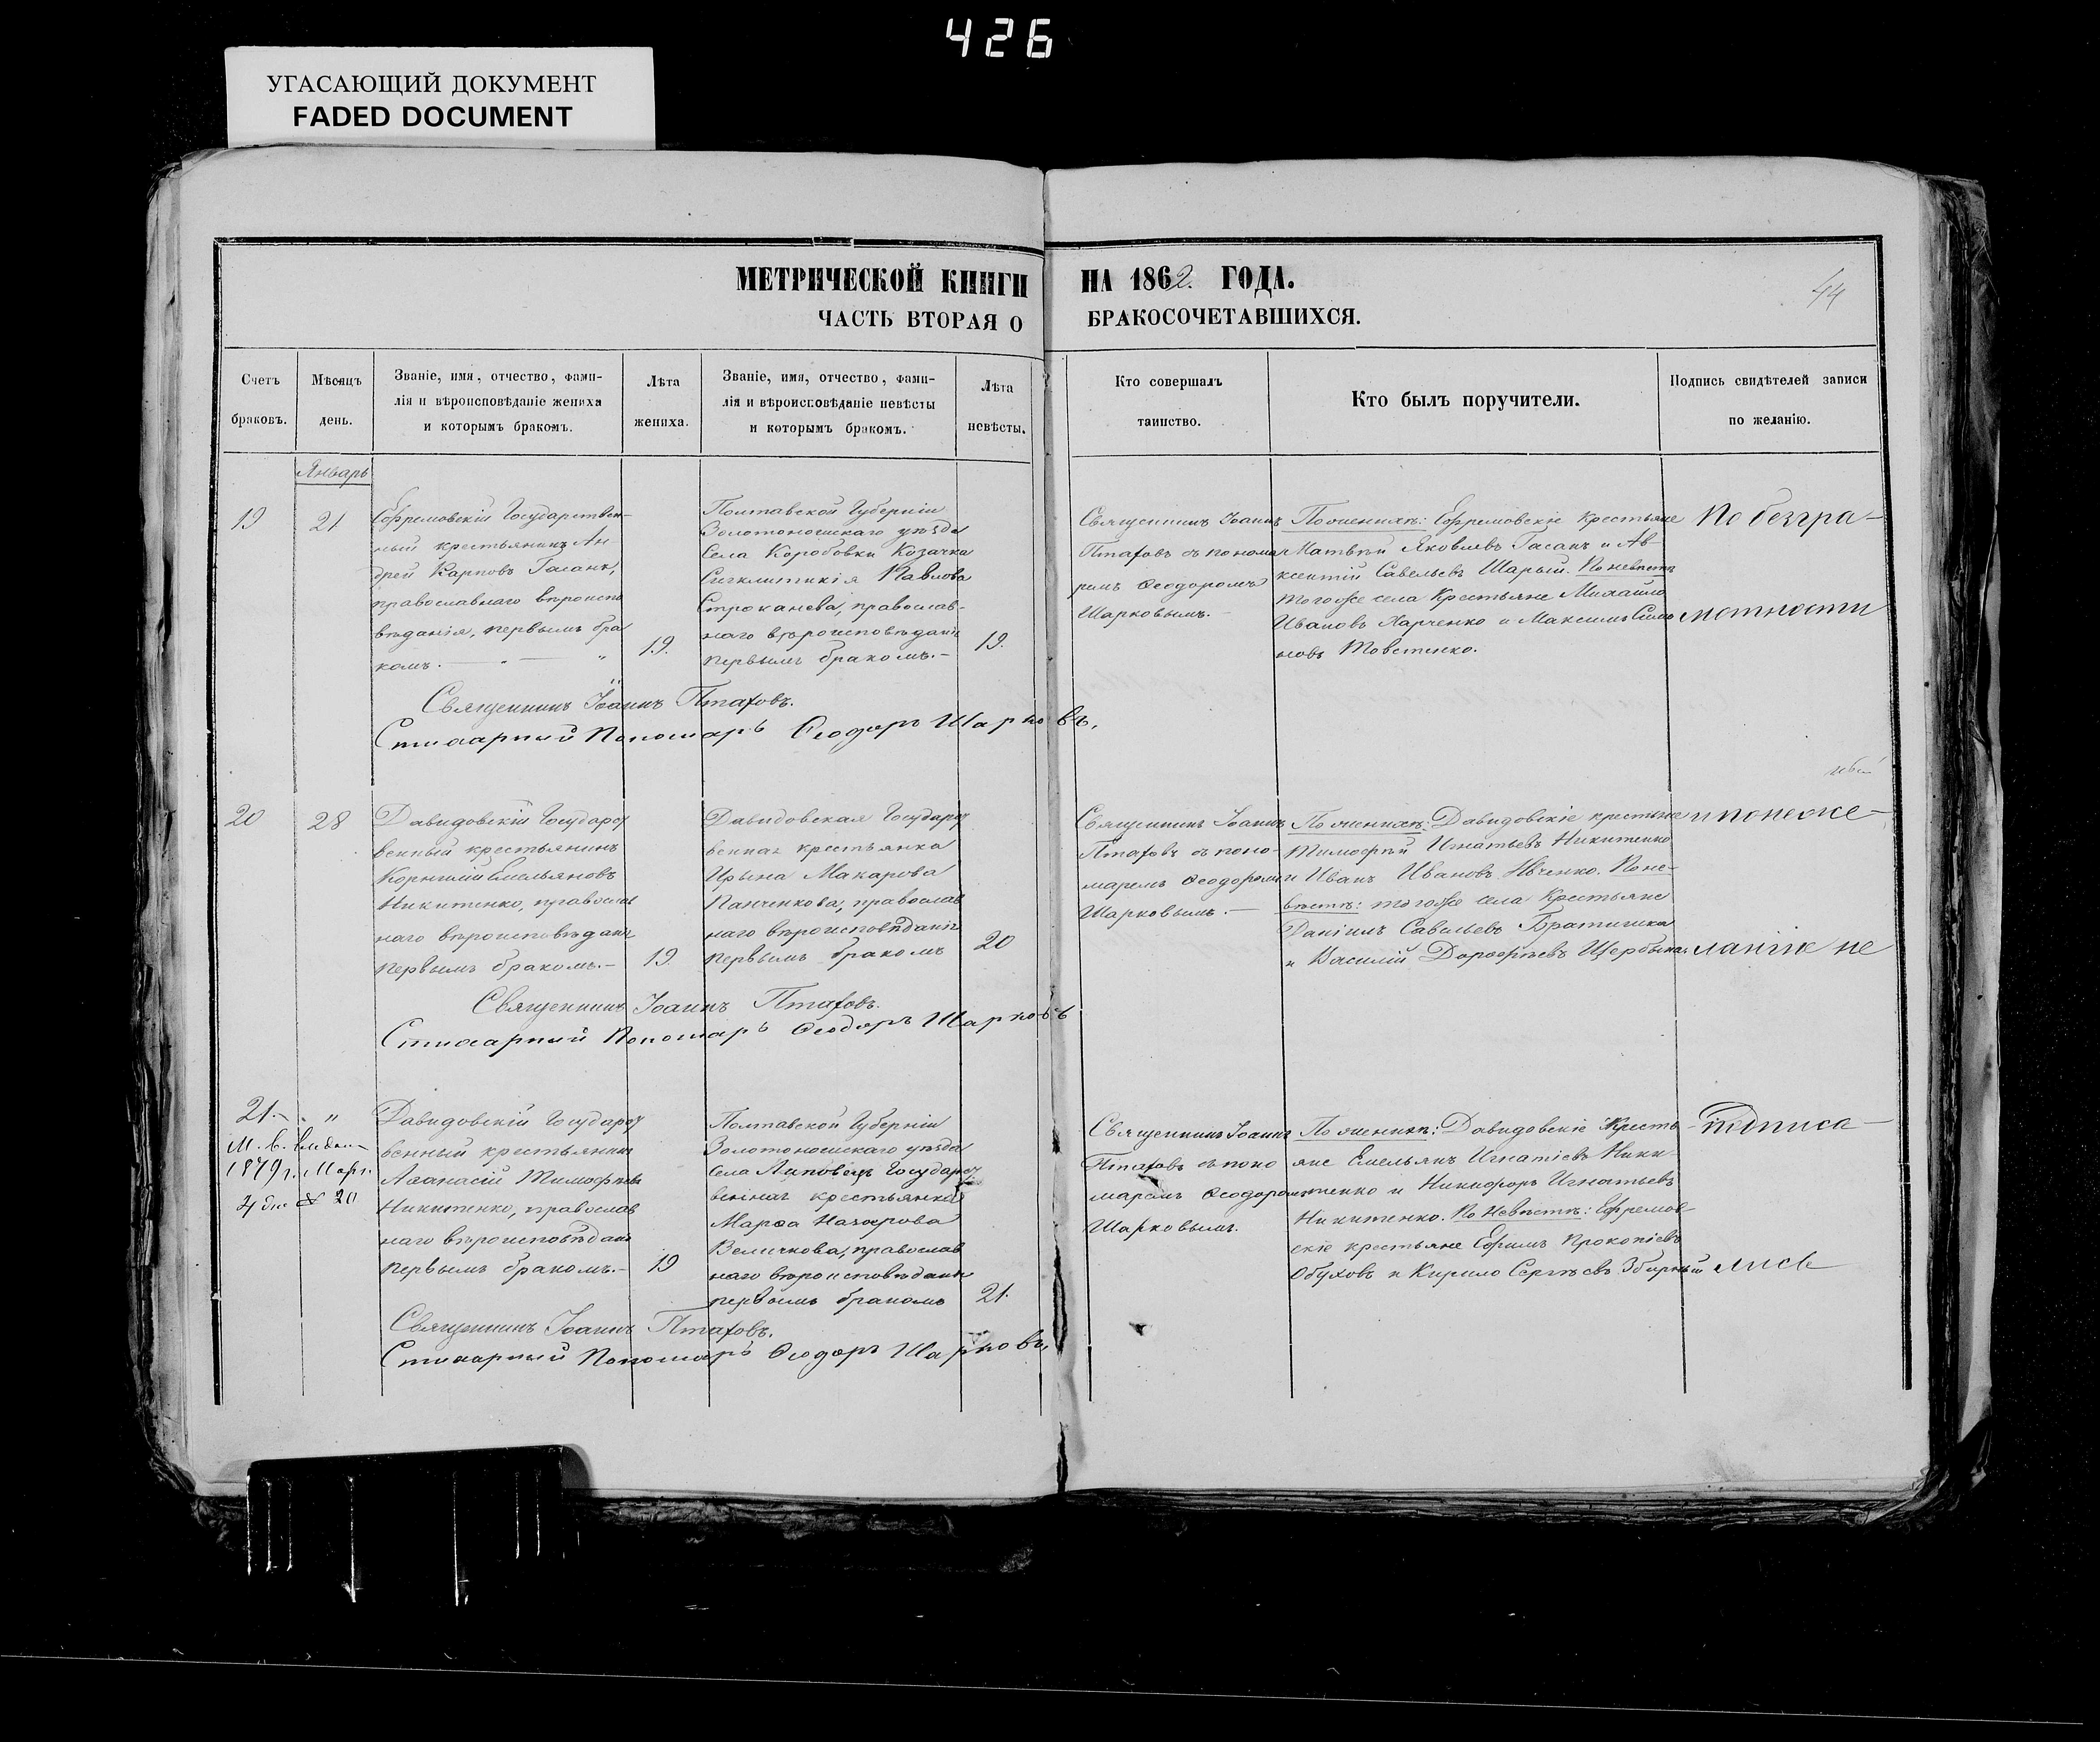 426
УГАСАЮЩИЙ ДОКУМЕНТ
FADED DOCUMENT
МЕТРИЧЕСКОЙ КНИГИ НА 1862. ГОДА.
44
ЧАСТЬ ВТОРАЯ О БРАКОСОЧЕТАВШИХСЯ.
Счетъ
браковъ.
Мѣсяцъ
день.
Званіе, имя, отчество, фами-
лія и вѣроисповѣданіе жениха
и которымъ бракомъ.
Лѣта
жениха.
Званіе, имя, отчество, фами-
лія и вѣроисповѣданіе невѣсты
и которымъ бракомъ.
Лѣта
невѣсты.
Кто совершалъ
таинство.
Кто былъ поручители.
Подпись свидѣтелей записи
по желанію.
Январь
19
21
Ефремовскій Государствен-
ный крестьянинъ Ан-
дрей Карповъ Гасанъ,
православнаго вѣроиспо
вѣданія, первымъ бра
комъ.
19.
Полтавской Губерніи
Золотоношскаго уѣзда
Села Коробовки Козачка
Сигклитикія Павлова
Строканева, православ-
наго вѣроисповѣданія
первымъ бракомъ.-
19.
Священникъ Іоаннъ
Птаховъ съ понома
ремъ Ѳеодоромъ
Шарковымъ.-
По женихѣ: Ефремовскіе крестьяне
Матвѣй Яковлевъ Гасанъ и Ав-
ксентій Савельевъ Шарый. По невѣстѣ
тогоже села Крестьяне Михаило
Ивановъ Харченко и Максимъ Симо
новъ Товстенко.
По безгра-
мотности
Священникъ Іоаннъ Птаховъ.
Стихарный Пономарь Ѳеодоръ Шарковъ.
20
28
Давидовскій Государст
венный крестьянинъ
Корнилій Емельяновъ
Никитенко, православ
наго вѣроисповѣданія
первымъ бракомъ.-
19.
Давидовская Государст
венная крестьянка
Ирына Макарова
Панченкова, православ
наго вѣроисповѣданія
первымъ бракомъ
20
Священникъ Іоаннъ
Птаховъ съ поно-
маремъ Ѳеодоромъ
Шарковымъ.-
По женихѣ: Давидовскіе крестьяне
Тимофѣй Игнатьевъ Никитенко
и Иванъ Ивановъ Ивченко. По не-
вѣстѣ: тогоже села Крестьяне
Даніилъ Савельевъ Братишка
и Василій Дорофѣевъ Щербына.
и понеже-
ланію не
Священникъ Іоаннъ Птаховъ.
Стихарный Пономарь Ѳеодоръ Шарковъ
21.
"
1879 г. Март.
20
Давидовскій Государст
венный крестьянинъ
Аѳанасій Тимофѣевъ
Никитенко, православ
наго вѣроисповѣданія
первымъ бракомъ.-
19
Полтавской Губерніи
Золотоношскаго уѣзда
села Липовецъ Государст
венная крестьянка
Марѳа Назарова
Величкова, православ
наго вѣроисповѣданія
первымъ бракомъ
21.
Священникъ Іоаннъ
Птаховъ съ поно
маремъ Ѳеодоромъ
Шарковымъ.
По женихѣ: Давидовскіе Кресть-
яне Емельянъ Игнатіевъ Ники-
тенко и Никифоръ Игнатьевъ
Никитенко. По Невѣстѣ: Ефремов-
скіе крестьяне Ефимъ Прокопіевъ
Обуховъ и Кирило Сергѣевъ Збирный
подписа-
лись
Священникъ Іоаннъ Птаховъ.
Стихарный Пономарь Ѳеодоръ Шарковъ.